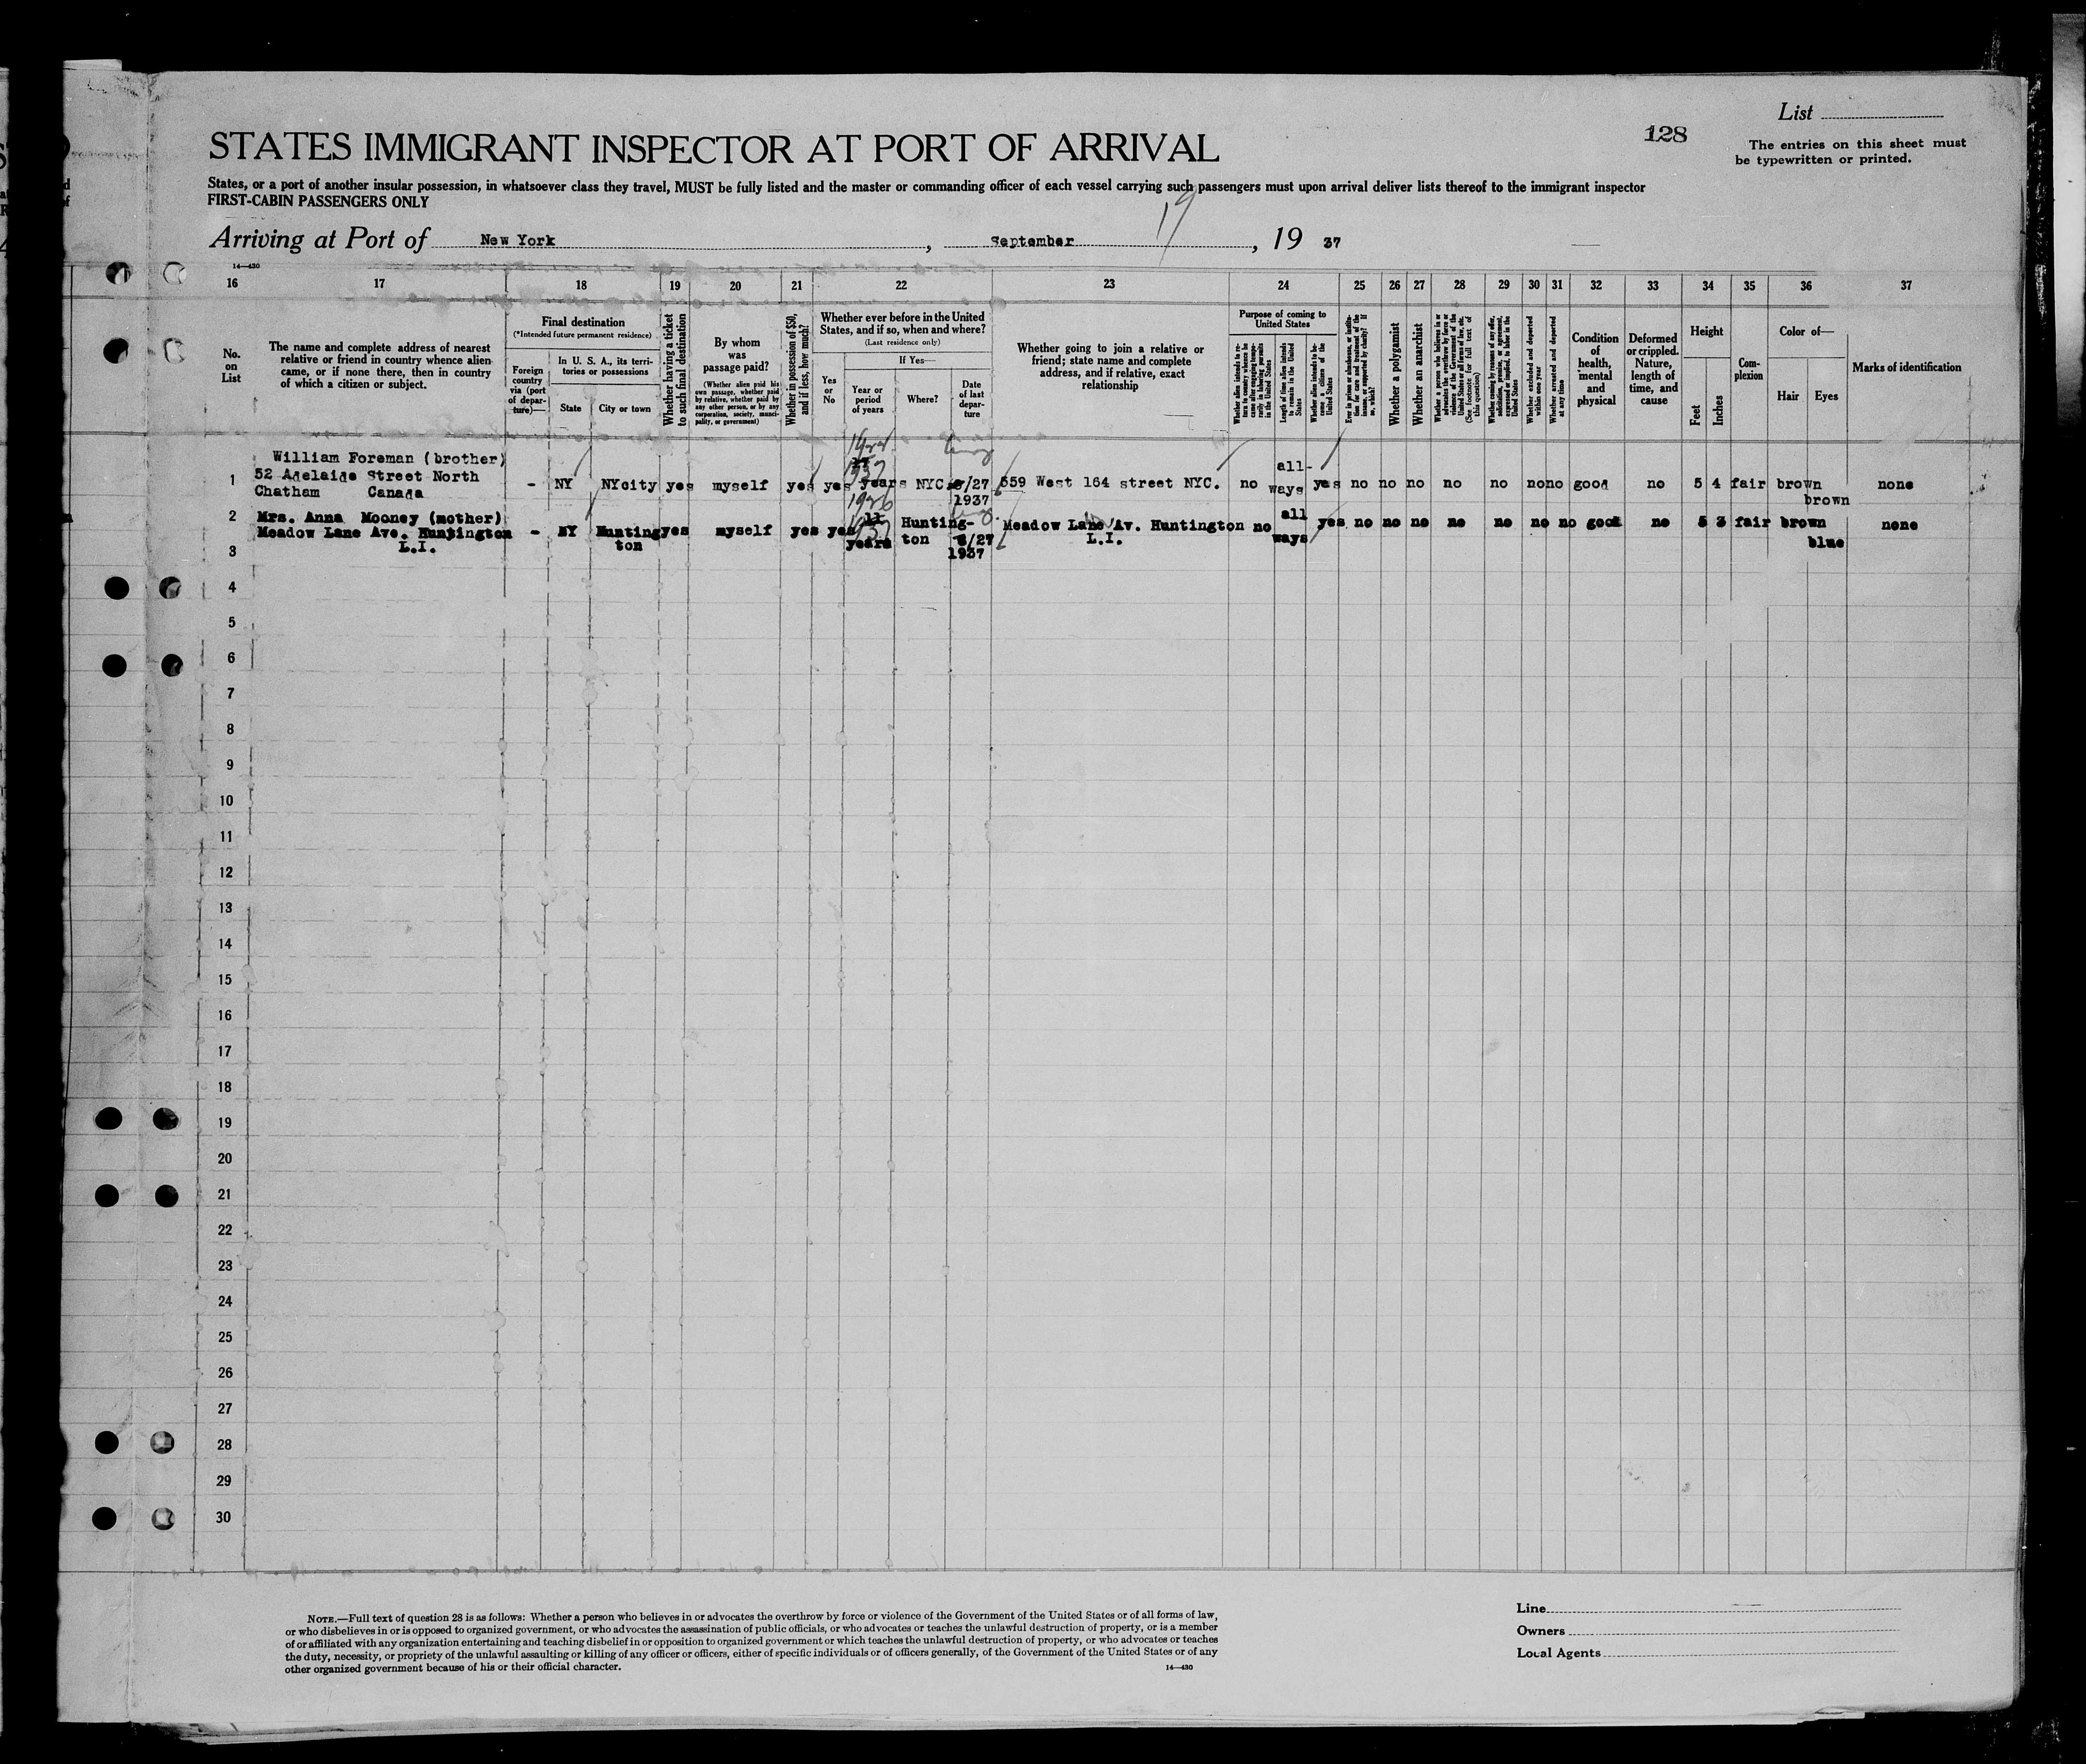 List
128
The entries on this sheet must
be typewritten or printed.
STATES IMMIGRANT INSPECTOR AT PORT OF ARRIVAL
States, or a port of another insular possession, in whatsoever class they travel, MUST be fully listed and the master or commanding officer of each vessel carrying such passengers must upon arrival deliver lists thereof to the immigrant inspector
FIRST-CABIN PASSENGERS ONLY
Arriving at Port of New York, September 19, 19 37
14—430
16 17 18 19 20 21 22 23 24 25 26 27 28 29 30 31 32 33 34 35 36 37
No.
on
List
The name and complete address of nearest
relative or friend in country whence alien
came, or if none there, then in country
of which a citizen or subject.
Final destination
(*Intended future permanent residence)
Foreign
country
via (port
of depar-
ture)—
In U. S. A., its terri-
tories or possessions
State City or town
Whether having a ticket
to such final destination
By whom
was
passage paid?
(Whether alien paid his
own passage, whether paid
by relative, whether paid by
any other person, or by any
corporation, society, munici-
pality, or government)
Whether in possession of $50,
and if less, how much?
Whether ever before in the United
States, and if so, when and where?
(Last residence only)
If Yes—
Yes
or
No
Year or
period
of years
Where?
Date
of last
depar-
ture
Whether going to join a relative or
friend; state name and complete
address, and if relative, exact
relationship
Purpose of coming to
United States
Whether alien intends to re-
turn to country whence he
came after engaging tempo-
rarily in laboring pursuits
in the United States
Length of time alien intends
to remain in the United
States
Whether alien intends to be-
come a citizen of the
United States
Ever in prison or almshouse, or institu-
tion for care and treatment of the
insane, or supported by charity? If
so, which?
Whether a polygamist
Whether an anarchist
Whether a person who believes in or
advocates the overthrow by force or
violence of the Government of the
United States or all forms of law, etc.
(See footnote for full text of
this question)
Whether coming by reasons of any offer,
solicitation, promise, or agreement,
expressed or implied, to labor in the
United States
Whether excluded and deported
within one year
Whether arrested and deported
at any time
Condition
of
health,
mental
and
physical
Deformed
or crippled.
Nature,
length of
time, and
cause
Height
Feet Inches
Com-
plexion
Color of—
Hair Eyes
Marks of identification
William Foreman (brother)
1 52 Adelaide Street North - NY NYcity yes myself yes yes years NYC. 8/27 559 West 164 street NYC. no all-ways yes no no no no no no no good no 5 4 fair brown none
Chatham Canada 1937 brown
2 Mrs. Anna Mooney (mother) - NY Huntington yes myself yes yes 11 Hunting- Meadow Lane Av. Huntington no all yes no no no no no no no good no 5 3 fair brown none
Meadow Lane Ave. Huntington years ton 8/27 L.I. ways blue
L.I. 1937
3
4
5
6
7
8
9
10
11
12
13
14
15
16
17
18
19
20
21
22
23
24
25
26
27
28
29
30
NOTE.—Full text of question 28 is as follows: Whether a person who believes in or advocates the overthrow by force or violence of the Government of the United States or of all forms of law,
or who disbelieves in or is opposed to organized government, or who advocates the assassination of public officials, or who advocates or teaches the unlawful destruction of property, or is a member
of or affiliated with any organization entertaining and teaching disbelief in or opposition to organized government or which teaches the unlawful destruction of property, or who advocates or teaches
the duty, necessity, or propriety of the unlawful assaulting or killing of any officer or officers, either of specific individuals or of officers generally, of the Government of the United States or of any
other organized government because of his or their official character.
14—430
Line
Owners
Local Agents